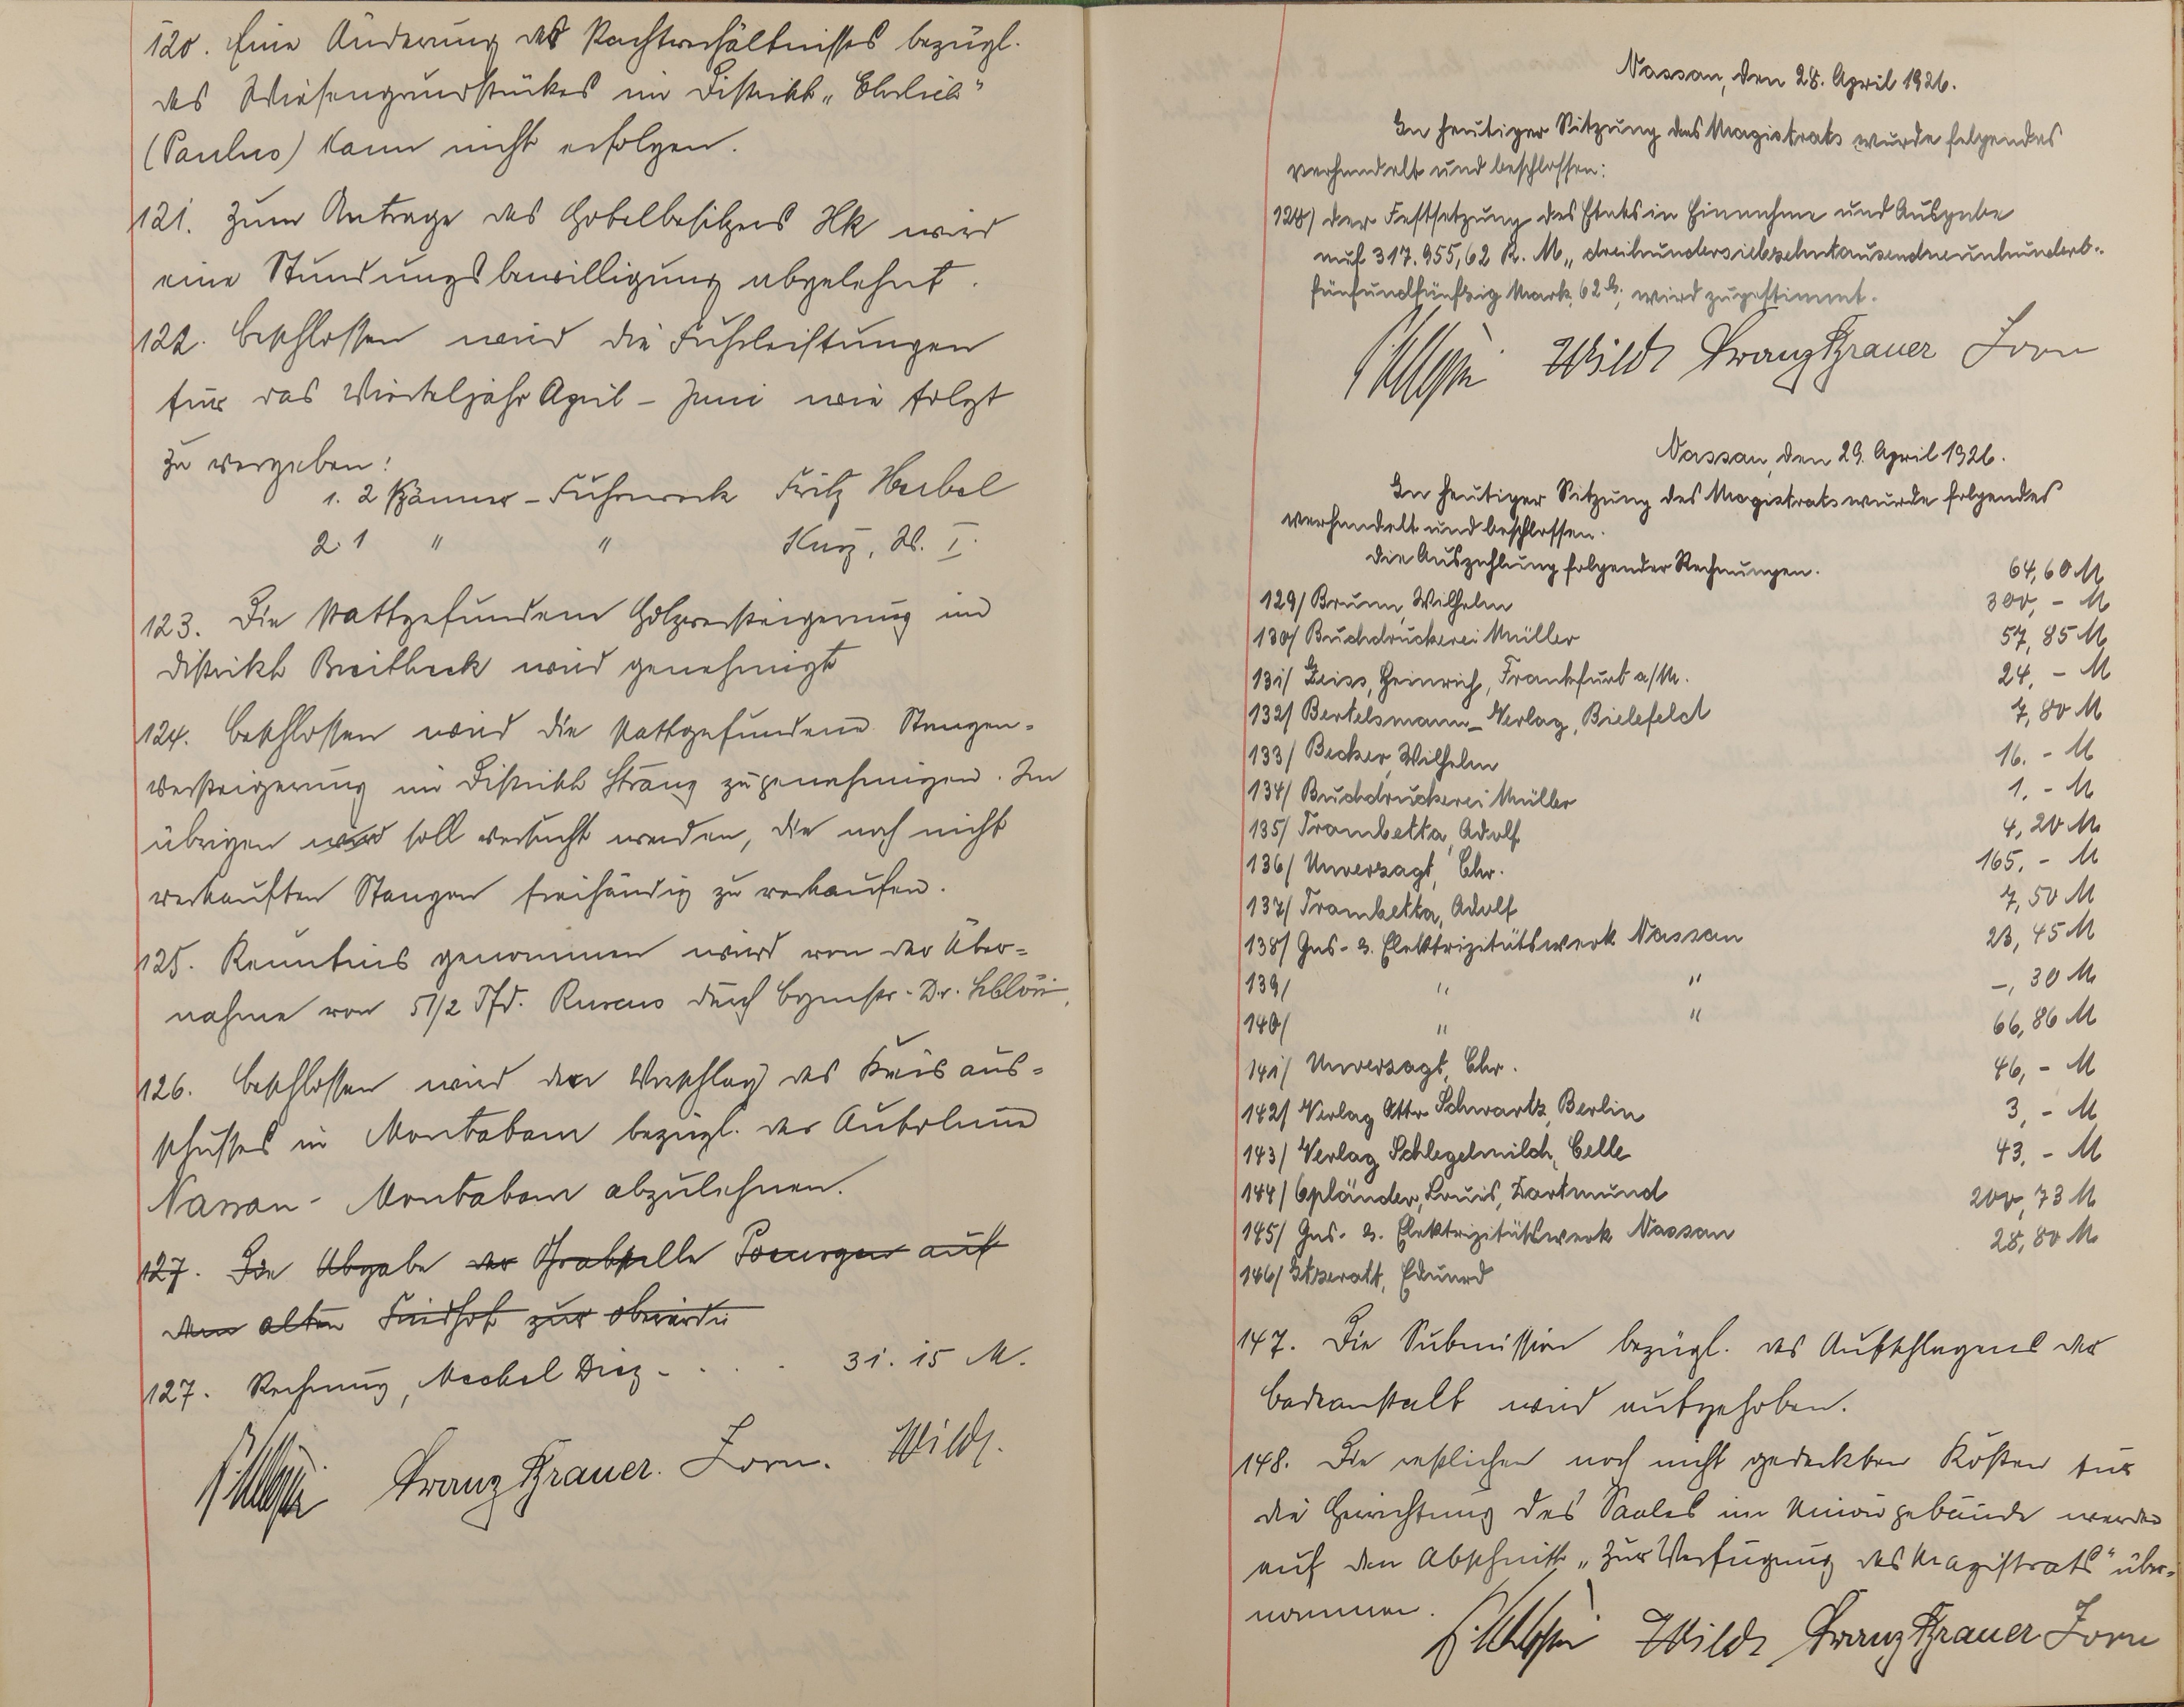 120. Eine Änderung des Pachtverhältnisses bezügl.
des Wiesengrundstückes im Distrikt „Ehrlich"
(Paulus) kann nicht erfolgen.
121. Zum Antrage des Hobelbesitzers wird
eine Stundungsbewilligung abgelehnt.
122. Beschlossen wird die Fuhrleistungen
für das Vierteljahr April - Juni wie folgt
zu vergeben:
1. 2 Spänner-Fuhrwerk Fritz Herbel
2. 1 " " Kurz, W. I.
123. Die stattgefundene Holzversteigerung im
Distrikt Breitheck wird genehmigt
124. Beschlossen wird die stattgefundene Stangen-
versteigerung im Distrikt Strang zu genehmigen. Im
übrigen wird soll versucht werden, die noch nicht
verkauften Stangen freihändig zu verkaufen.
125. Kenntnis genommen wird von der Über-
nahme von 51/2 Pfd. durch Bgmstr. Dr.
126. Beschlossen wird den Vorschlag des Kreisaus-
schusses in Montabaur bezügl. der Autolinie
Nassau - Montabaur abzulehnen.
127. Die Abgabe der Grabstelle auf
dem alten Friedhof zur
127. Rechnung, Mechel Diez - . . . 31.15 M.
Franz Brauer. Zorn. Wild.
Nassau, den 28. April 1926.
In heutiger Sitzung des Magistrats wurde folgendes
verhandelt und beschlossen:
128) Der Festsetzung des Etats in Einnahme und Ausgabe
auf 317.955,62 R. M „ dreihundertsiebzehntausendneunhundert-
fünfundfünfzig Mark, 62 ₰, wird zugestimmt.
Wild Franz Brauer Zorn
Nassau, den 29. April 1926.
In heutiger Sitzung des Magistrats wurde folgendes
verhandelt und beschlossen.
Die Auszahlung folgender Rechnungen.
129/ Brunn, Wilhelm 64,60 M
130/ Buchdruckerei Müller 300,- M
131/ Zeiss, Heinrich, Frankfurt a/M. 57,85 M
132/ Bertelsmann-Verlag, Bielefeld 24,- M
133/ Becker, Wilhelm 7,80 M
134/ Buchdruckerei Müller 16.- M
135/ Trombetta, Adolf 1.- M
136/ Unverzagt, Chr. 4,20 M
137/ Trombetta, Adolf 165,- M
138/ Gas- u. Elektrizitätswerk Nassau 7,50 M
139/ " " 23,45 M
140/ " " -,30 M
141/ Unverzagt, Chr. 66,86 M
142/ Verlag Otto Schwartz, Berlin 46,- M
143/ Verlag Schlegelmilch, Celle 3,- M
144/ Opländer, Louis, Dortmund 43,- M
145/ Gas- u. Elektrizitätswerk Nassau 200,73 M
146/ Eduard 28,80 M
147. Die Submission bezügl. des Aufschlagens der
Badeanstalt wird aufgehoben.
148. Die restlichen noch nicht gedeckten Kosten für
die Herrichtung des Saales im Uniongebäude werden
auf den Abschnitt „Zur Verfügung des Magistrats" über-
nommen.
Wild Franz Brauer Zorn